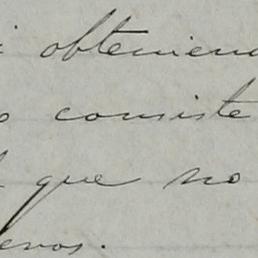 i obteniend
o consiste
l que no
evos.